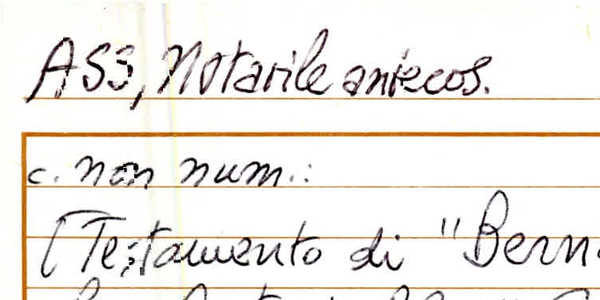 ASS, Notarile antecos.
c. non num.:
[Testamento di "Bern